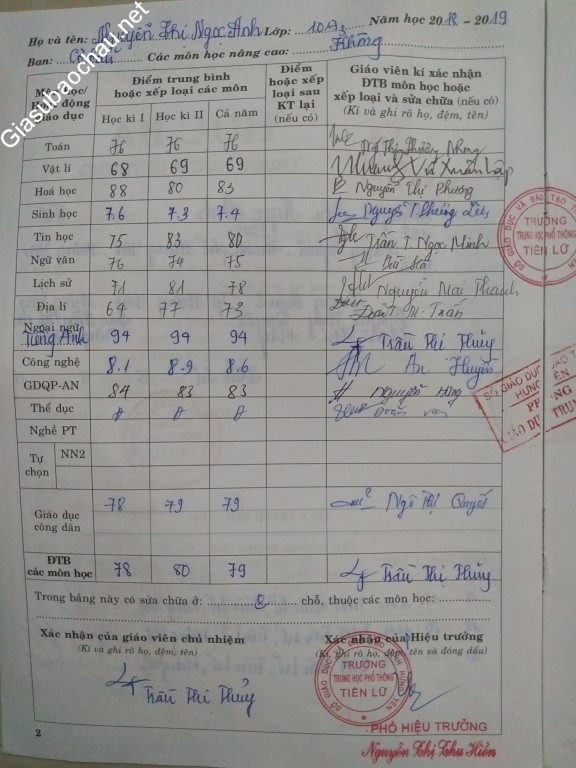 Giasubaochau.net
Họ và tên: Nguyễn Thị Ngọc Ánh Lớp: 10A3 Năm học 2018 - 2019
Ban: Cơ bản Các môn học nâng cao: Không
Môn học/ Hoạt động giáo dục
Điểm trung bình hoặc xếp loại các môn
Học kì I Học kì II Cả năm
Điểm hoặc xếp loại sau KT lại (nếu có)
Giáo viên kí xác nhận ĐTB môn học hoặc xếp loại và sửa chữa (nếu có)
(Kí và ghi rõ họ, đệm, tên)
Toán 76 76 76
Vật lí 68 69 69 Vũ Xuân Lập
Hoá học 88 80 83 Nguyễn Thị Phương
Sinh học 7.6 7.3 7.4
Tin học 75 83 80 Trần T. Ngọc Minh
Ngữ văn 76 74 75
Lịch sử 71 81 78 Nguyễn Mai Thanh
Địa lí 64 77 73
Ngoại ngữ Tiếng Anh 94 94 94 Trần Thị Thủy
Công nghệ 8.1 8.9 8.6 An Huyền
GDQP-AN 84 83 83 Nguyễn Hùng
Thể dục Đ Đ Đ
Nghề PT
Tự chọn NN2
Giáo dục công dân 78 79 79 Ngô Thị Quyết
ĐTB các môn học 78 80 79 Trần Thị Thủy
Trong bảng này có sửa chữa ở: 0 chỗ, thuộc các môn học:
Xác nhận của giáo viên chủ nhiệm Xác nhận của Hiệu trưởng
(Kí và ghi rõ họ, đệm, tên) (Kí, ghi rõ họ, đệm, tên và đóng dấu)
Trần Thị Thủy
TRƯỜNG
TRUNG HỌC PHỔ THÔNG
TIÊN LỮ
PHÓ HIỆU TRƯỞNG
Nguyễn Thị Thu Hiền
2
SỞ GIÁO DỤC VÀ ĐÀO TẠO
TRƯỜNG
TRUNG HỌC PHỔ THÔNG
TIÊN LỮ